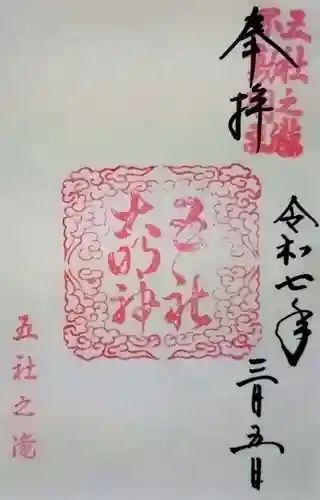 五社之滝
不動明王
奉拝
令和七年
三月五日
五社
大明神
五社之滝